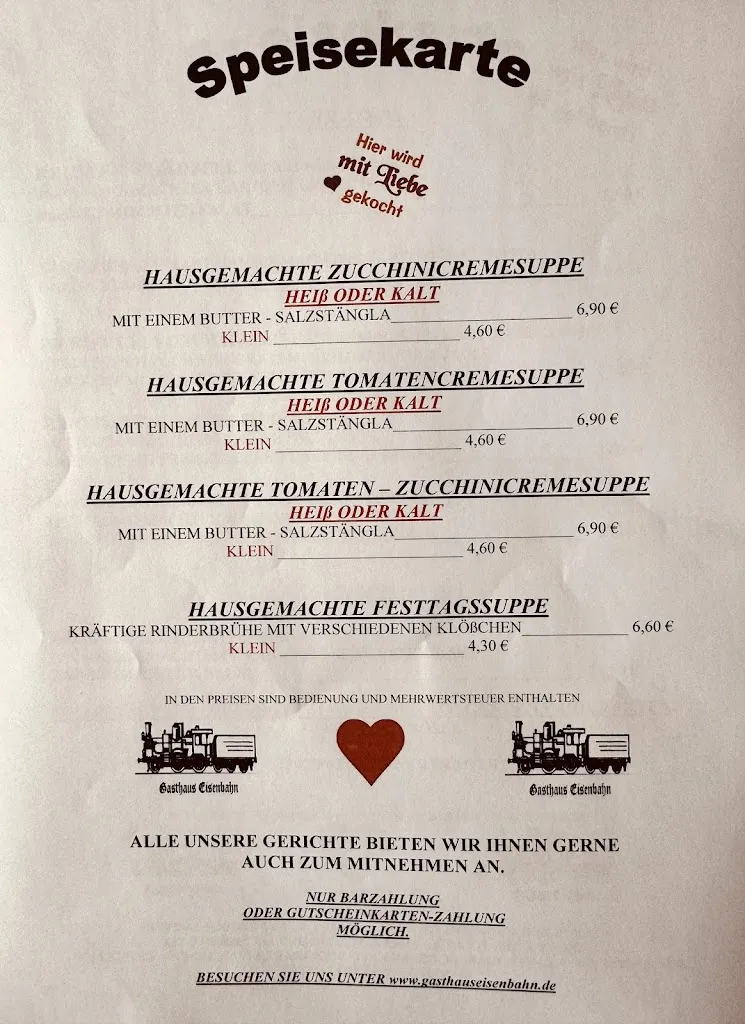 Speisekarte
Hier wird
mit Liebe
gekocht
HAUSGEMACHTE ZUCCHINICREMESUPPE
HEIß ODER KALT
MIT EINEM BUTTER - SALZSTÄNGLA____________________ 6,90 €
KLEIN ____________________ 4,60 €
HAUSGEMACHTE TOMATENCREMESUPPE
HEIß ODER KALT
MIT EINEM BUTTER - SALZSTÄNGLA____________________ 6,90 €
KLEIN ____________________ 4,60 €
HAUSGEMACHTE TOMATEN – ZUCCHINICREMESUPPE
HEIß ODER KALT
MIT EINEM BUTTER - SALZSTÄNGLA____________________ 6,90 €
KLEIN ____________________ 4,60 €
HAUSGEMACHTE FESTTAGSSUPPE
KRÄFTIGE RINDERBRÜHE MIT VERSCHIEDENEN KLÖßCHEN____________ 6,60 €
KLEIN ____________________ 4,30 €
IN DEN PREISEN SIND BEDIENUNG UND MEHRWERTSTEUER ENTHALTEN
Gasthaus Eisenbahn
Gasthaus Eisenbahn
ALLE UNSERE GERICHTE BIETEN WIR IHNEN GERNE
AUCH ZUM MITNEHMEN AN.
NUR BARZAHLUNG
ODER GUTSCHEINKARTEN-ZAHLUNG
MÖGLICH.
BESUCHEN SIE UNS UNTER www.gasthauseisenbahn.de